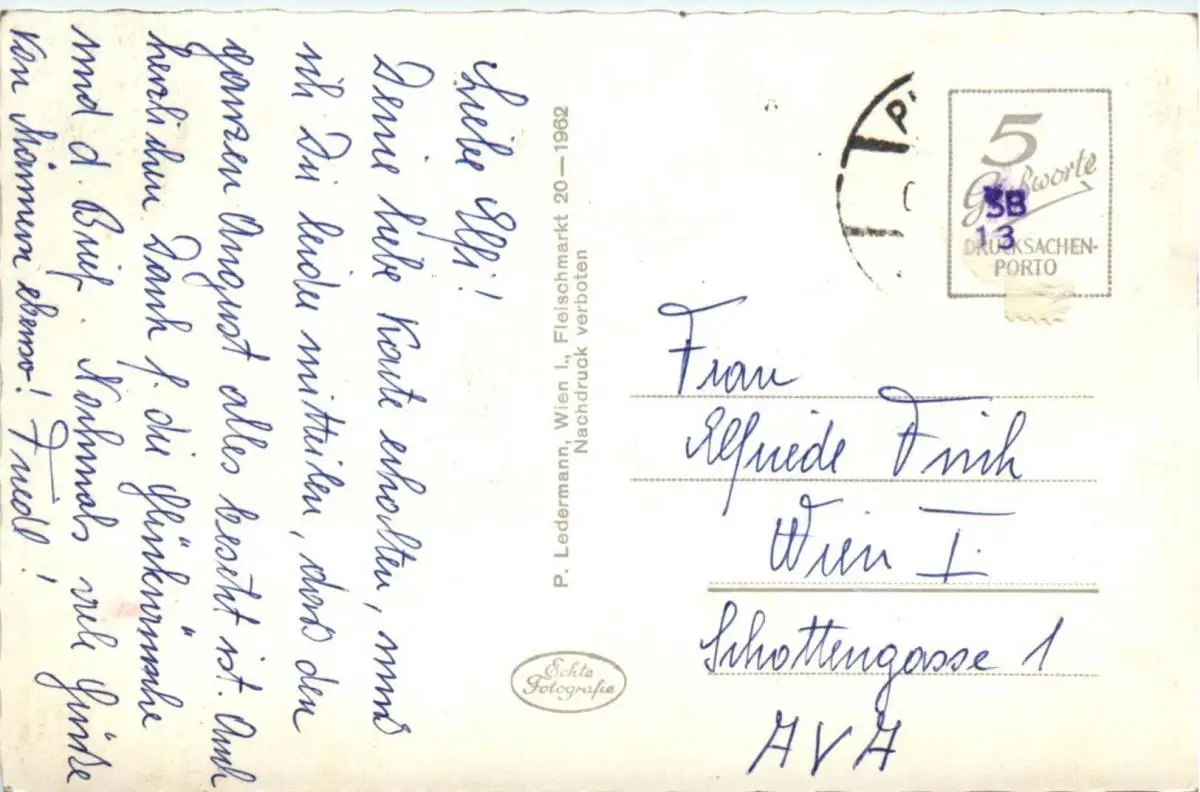 Liebe Elfi!
Deine liebe Karte erhalten, muss
ich Dir leider mitteilen, dass den
ganzen August alles besetzt ist. Auch
herzlichen Dank f. die Glückwünsche
und d. Brief. Nochmals viele Grüße
von Männern ebenso! Friedl!
P. Ledermann, Wien I., Fleischmarkt 20—1962
Nachdruck verboten
Echte
Fotografie
P
5
Grußworte
SB
13
DRUCKSACHEN-
PORTO
Frau
Elfriede Frich
Wien I.
Schottengasse 1
AVA